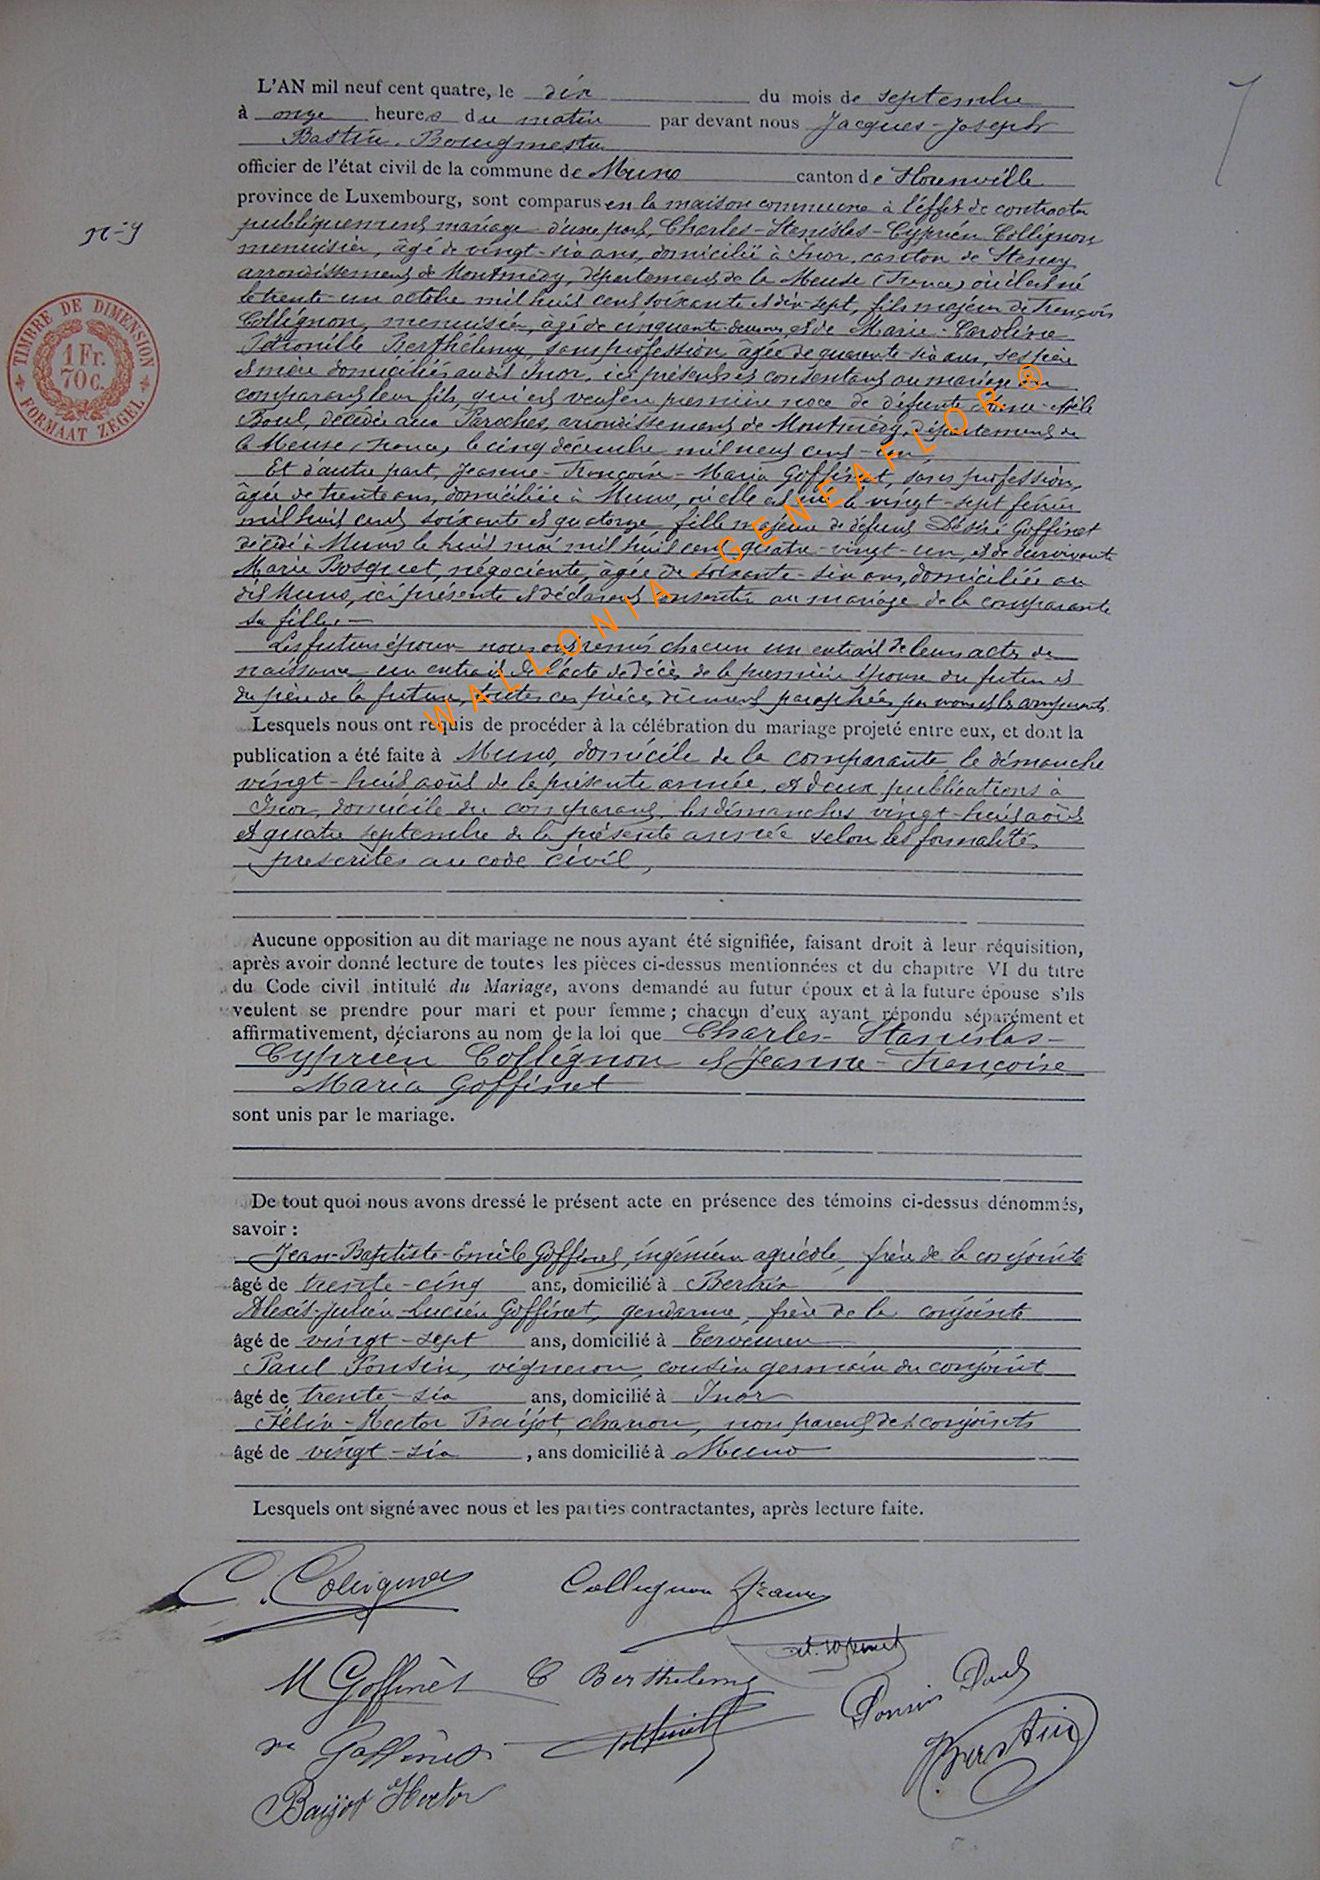 L'AN mil neuf cent quatre, le dix du mois de septembre
à onze heures du matin par devant nous Jacques-Joseph
Bastin, Bourgmestre
officier de l'état civil de la commune de Muno canton de Florenville
province de Luxembourg, sont comparus en la maison commune à l'effet de contracter
publiquement mariage d'une part, Charles-Stanislas-Cyprien Collignon
menuisier, âgé de vingt-six ans, domicilié à Inor, canton de Stenay
arrondissement de Montmédy, département de la Meuse (France) où il est né
le trente-un octobre mil huit cent soixante et dix-sept, fils majeur de François
Collignon, menuisier, âgé de cinquante-deux ans et de Marie-Caroline
Pétronille Berthélemy, sans profession, âgée de quarante-six ans, ses père
et mère domiciliés audit Inor, ici présents et consentant au mariage du
comparant leur fils, qui est veuf en première noce de défunte
décédée aux Paroches, arrondissement de Montmédy, département de
la Meuse, France, le cinq décembre mil neuf cent-un,
Et d'autre part, Jeanne-Françoise-Maria Goffinet, sans profession,
âgée de trente ans, domiciliée à Muno, où elle est née le vingt-sept février
mil huit cent soixante et quatorze fille majeure de défunt Désiré Goffinet
décédé à Muno le huit mai mil huit cent quatre-vingt-un, et de survivante
Marie Bosquet, négociante, âgée de soixante-six ans, domiciliée au
dit Muno, ici présente et déclarant consentir au mariage de la comparante
sa fille. —
Les futurs époux nous ont remis chacun un extrait de leurs actes de
naissance un extrait de l'acte de décès de la première épouse du futur et
du père de la future, toutes ces pièces dûment paraphées par nous et les comparants.
Lesquels nous ont requis de procéder à la célébration du mariage projeté entre eux, et dont la
publication a été faite à Muno, domicile de la comparante le dimanche
vingt-huit août de la présente année, et deux publications à
Inor, domicile du comparant, les dimanches vingt-huit août
et quatre septembre de la présente année selon les formalités
prescrites au code civil,
Aucune opposition au dit mariage ne nous ayant été signifiée, faisant droit à leur réquisition,
après avoir donné lecture de toutes les pièces ci-dessus mentionnées et du chapitre VI du titre
du Code civil intitulé du Mariage, avons demandé au futur époux et à la future épouse s'ils
veulent se prendre pour mari et pour femme ; chacun d'eux ayant répondu séparément et
affirmativement, déclarons au nom de la loi que Charles-Stanislas-
Cyprien Collignon et Jeanne-Françoise
Maria Goffinet
sont unis par le mariage.
De tout quoi nous avons dressé le présent acte en présence des témoins ci-dessus dénommés,
savoir :
Jean-Baptiste-Emile Goffinet, ingénieur agricole, frère de la conjointe
âgé de trente-cinq ans, domicilié à Bertrix
Alexis-Julien-Lucien Goffinet, gendarme, frère de la conjointe
âgé de vingt-sept ans, domicilié à Tervueren
Paul Ponsin, vigneron, cousin germain du conjoint
âgé de trente-six ans, domicilié à Inor
Félix-Hector Baijot, charron, non parent des conjoints
âgé de vingt-six , ans domicilié à Muno
Lesquels ont signé avec nous et les parties contractantes, après lecture faite.
C. Collignon Collignon
M Goffinet C Berthelemy
Ponsin Paul
Goffinet
Bastin
Baijot Hector
n-9
TIMBRE DE DIMENSION
1 Fr.
70 c.
FORMAAT ZEGEL
WALLONIA-GENEAFLOR ®